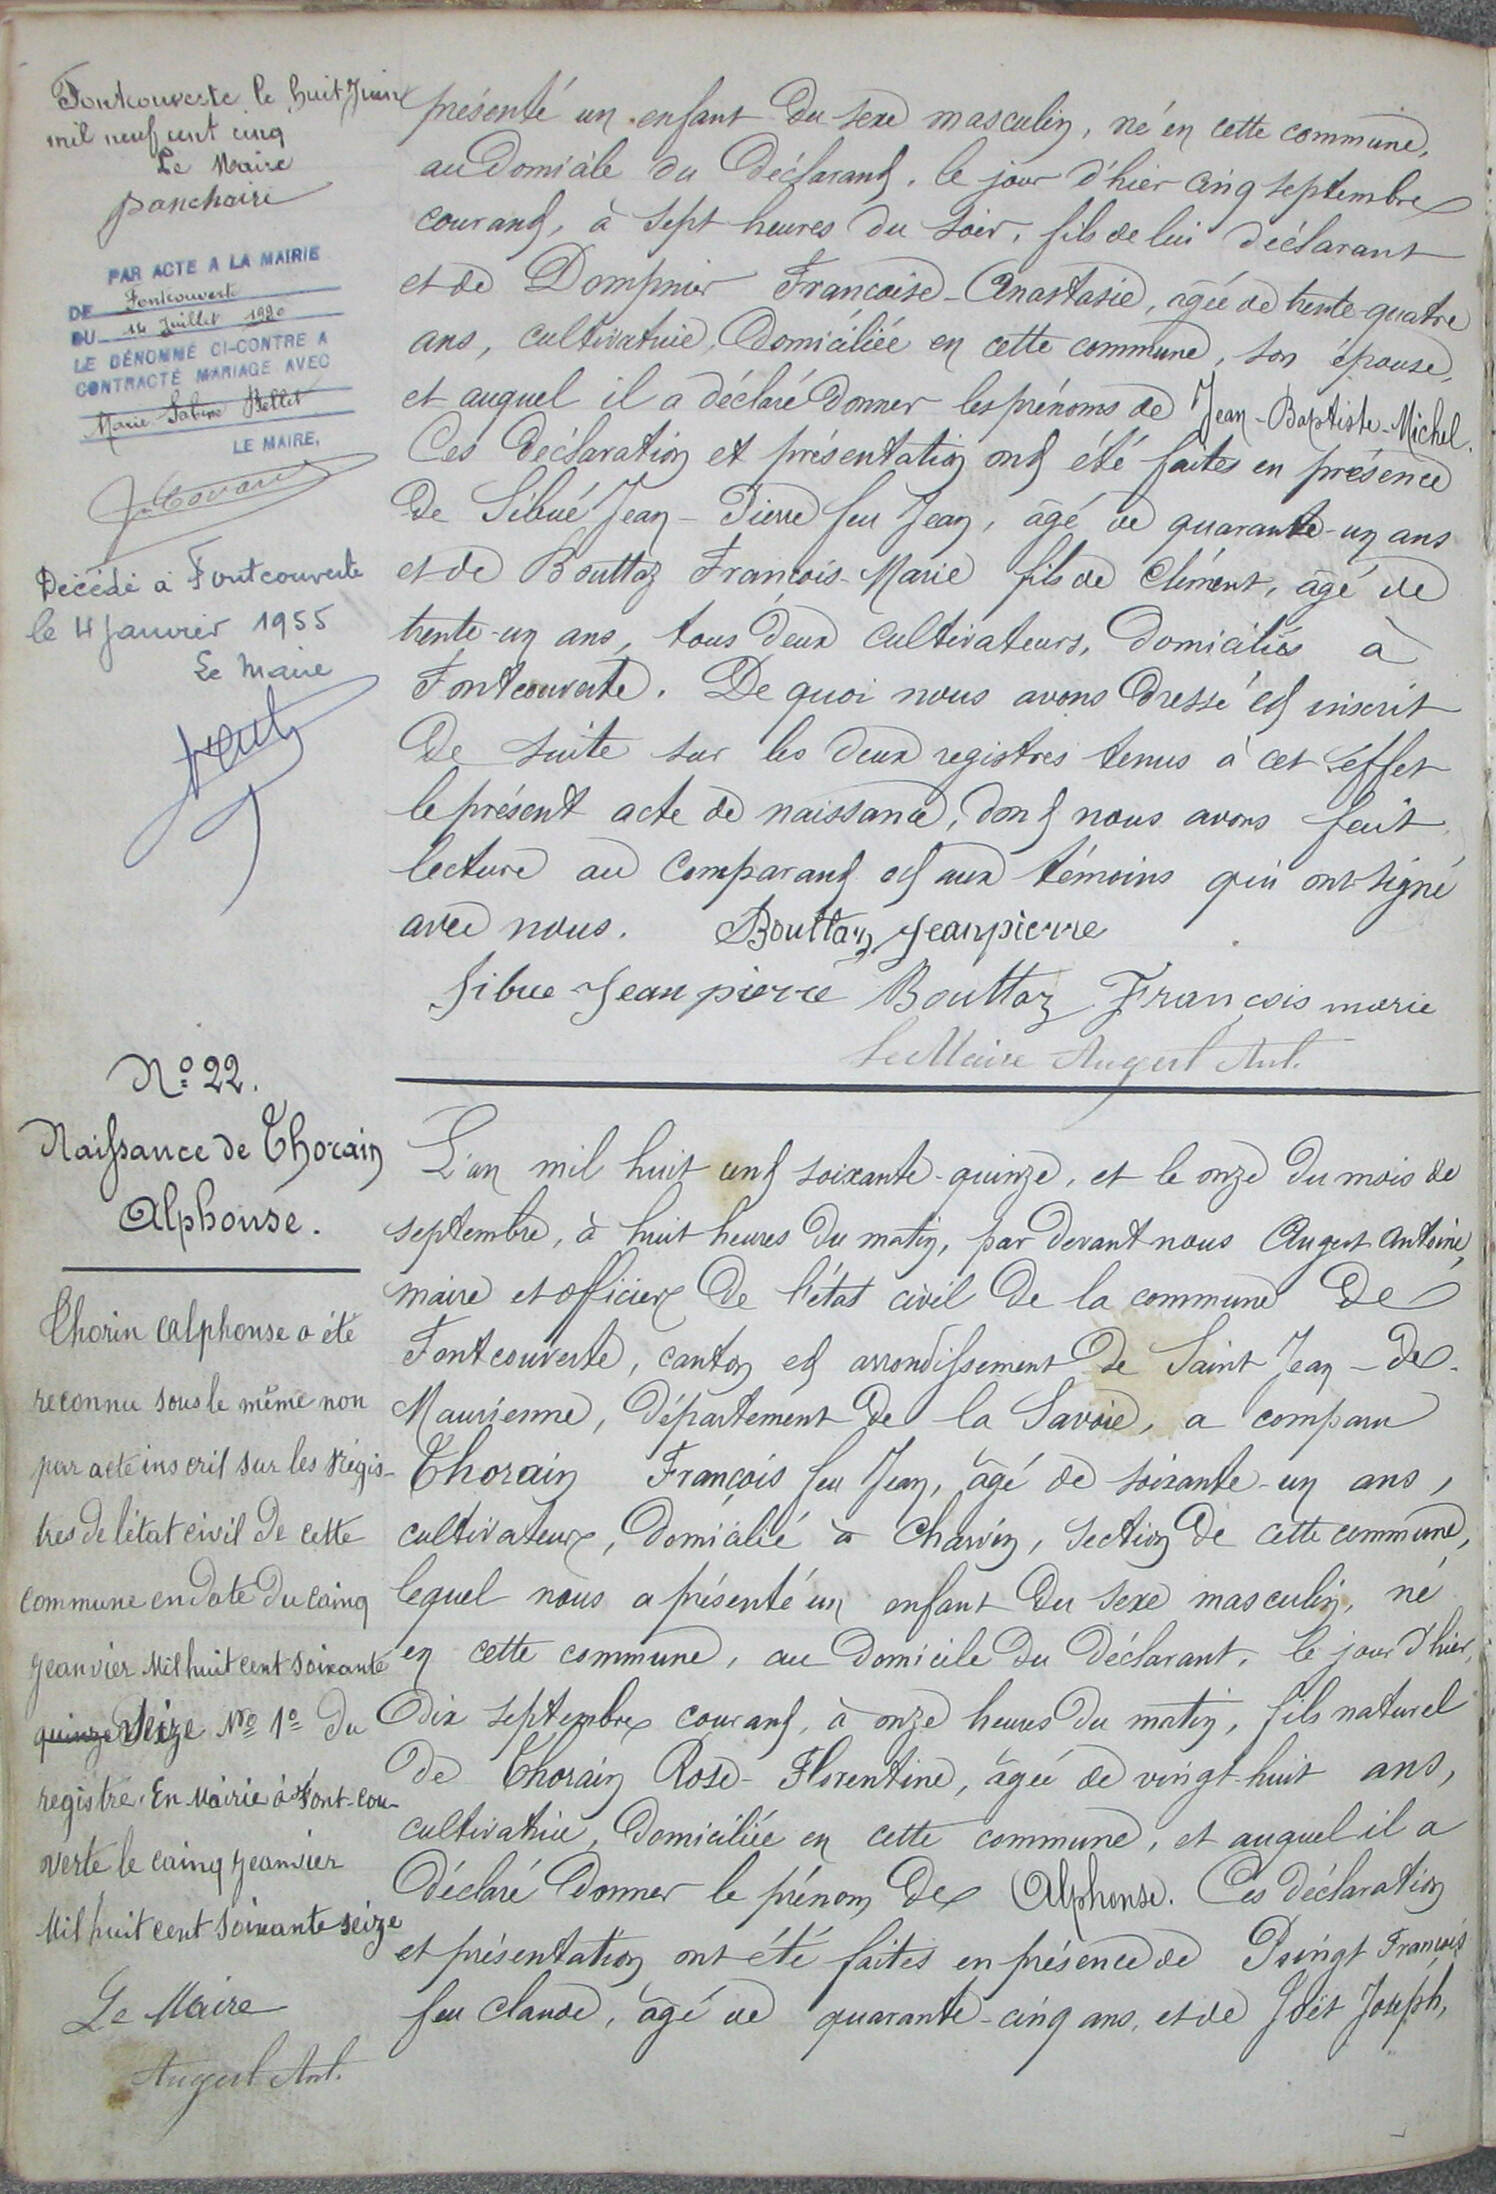 Fontcouverte le huit Juin
mil neuf cent cinq
Le Maire
PAR ACTE A LA MAIRIE
DE Fontcouverte
DU 14 Juillet 1920
LE DÉNOMMÉ CI-CONTRE A
CONTRACTÉ MARIAGE AVEC
Marie Sabine Rellet
LE MAIRE,
Décédé à Fontcouverte
le 4 Janvier 1955
Le Maire
présenté un enfant du sexe masculin, né en cette commune,
au domicile du déclarant, le jour d'hier cinq septembre
courant, à sept heures du soir, fils de lui déclarant
et de Dompnier Françoise-Anastasie, âgée de trente-quatre
ans, cultivatrice, domiciliée en cette commune, son épouse,
et auquel il a déclaré donner les prénoms de Jean-Baptiste-Michel.
Ces déclaration et présentation ont été faites en présence
de Sibué Jean-Pierre feu Jean, âgé de quarante-un ans
et de Bouttaz François-Marie fils de Clément, âgé de
trente-un ans, tous deux cultivateurs, domiciliés à
Fontcouverte. De quoi nous avons dressé et inscrit
de suite sur les deux registres tenus à cet effet
le présent acte de naissance, dont nous avons fait
lecture au comparant et aux témoins qui ont signé
avec nous. Bouttaz Jeanpierre
Sibue Jean pierre Bouttaz François marie
Le Maire Augert Ant.
N° 22.
Naissance de Thorain
Alphonse.
Thorin Alphonse a été
reconnu sous le même non
par acte inscrit sur les Régis-
tres de l'état civil de cette
commune en date du cainq
jeanvier Mil huit cent soixante
quinze seize N° 1° du
registre. En Mairie à Font-cou-
verte le cainq jeanvier
Mil huit cent soixante seize
Le Maire
Augert Ant.
L'an mil huit cent soixante-quinze, et le onze du mois de
septembre, à huit heures du matin, par devant nous Augert Antoine,
maire et officier de l'état civil de la commune de
Fontcouverte, canton et arrondissement de Saint Jean-de-
Maurienne, département de la Savoie, a comparu
Thorain François feu Jean, âgé de soixante-un ans,
cultivateur, domicilié à Charvin, section de cette commune,
lequel nous a présenté un enfant du sexe masculin, né
en cette commune, au domicile du déclarant, le jour d'hier,
dix septembre courant, à onze heures du matin, fils naturel
de Thorain Rose-Florentine, âgée de vingt-huit ans,
cultivatrice, domiciliée en cette commune, et auquel il a
déclaré donner le prénom de Alphonse. Ces déclaration
et présentation ont été faites en présence de Puingt François
feu Claude, âgé de quarante-cinq ans, et de Joët Joseph,